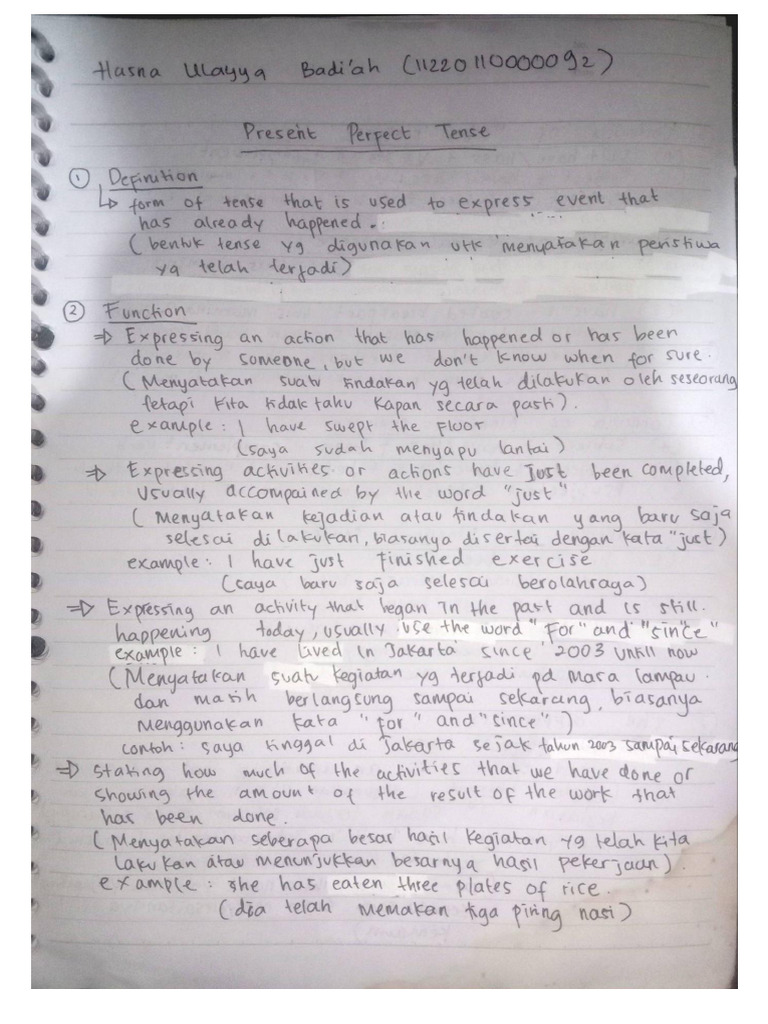 Hasna Ulayya Badi'ah (11220110000092)
Present Perfect Tense
① Definition
↳ form of tense that is used to express event that
has already happened.
(bentuk tense yg digunakan utk menyatakan peristiwa
yg telah terjadi)
② Function
⇒ Expressing an action that has happened or has been
done by someone, but we don't know when for sure.
(Menyatakan suatu tindakan yg telah dilakukan oleh seseorang
tetapi kita tidak tahu kapan secara pasti).
example: I have swept the floor
(saya sudah menyapu lantai)
⇒ Expressing activities or actions have just been completed,
usually accompained by the word "just"
(Menyatakan kejadian atau tindakan yang baru saja
selesai dilakukan, biasanya disertai dengan kata "just)
example: I have just finished exercise
(saya baru saja selesai berolahraga)
⇒ Expressing an activity that began in the past and is still
happening today, usually use the word "For" and "since"
example: I have lived in Jakarta since 2003 untill now
(Menyatakan suatu kegiatan yg terjadi pd masa lampau
dan masih berlangsung sampai sekarang, biasanya
menggunakan kata "for" and "since")
contoh: saya tinggal di Jakarta sejak tahun 2003 sampai sekarang
⇒ stating how much of the activities that we have done or
showing the amount of the result of the work that
has been done.
(Menyatakan seberapa besar hasil kegiatan yg telah kita
lakukan atau menunjukkan besarnya hasil pekerjaan).
example: she has eaten three plates of rice.
(dia telah memakan tiga piring nasi)